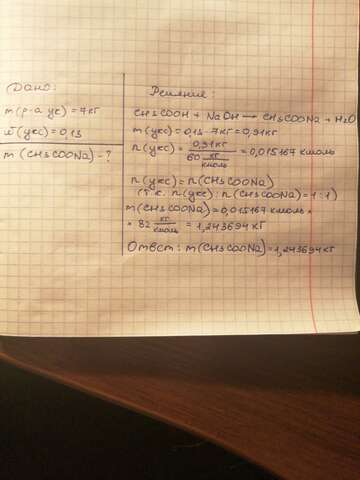 Дано:
m(р-а укс)=7кг
ω(укс)=0,13
m(CH3COONa)-?
Решение:
CH3COOH + NaOH → CH3COONa + H2O
m(укс)=0,13·7кг=0,91кг
n(укс)= 0,91кг / 60 кг/кмоль =0,015167 кмоль
n(укс)=n(CH3COONa)
(т.к. n(укс):n(CH3COONa)=1:1)
m(CH3COONa)=0,015167 кмоль×
×82 кг/кмоль = 1,243694 кг
Ответ: m(CH3COONa)=1,243694 кг